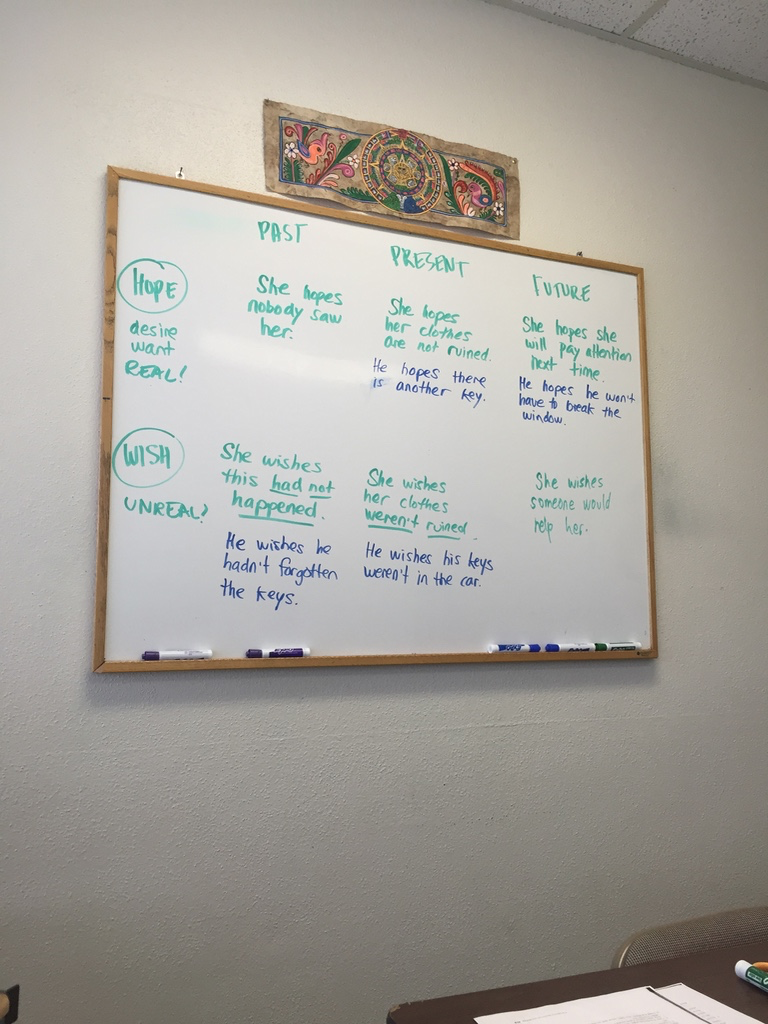 PAST
PRESENT
FUTURE
HOPE
desire
want
REAL!
She hopes
nobody saw
her.
She hopes
her clothes
are not ruined.
He hopes there
is another key.
She hopes she
will pay attention
next time.
He hopes he won't
have to break the
window.
WISH
UNREAL?
She wishes
this had not
happened.
He wishes he
hadn't forgotten
the keys.
She wishes
her clothes
weren't ruined.
He wishes his keys
weren't in the car.
She wishes
someone would
help her.